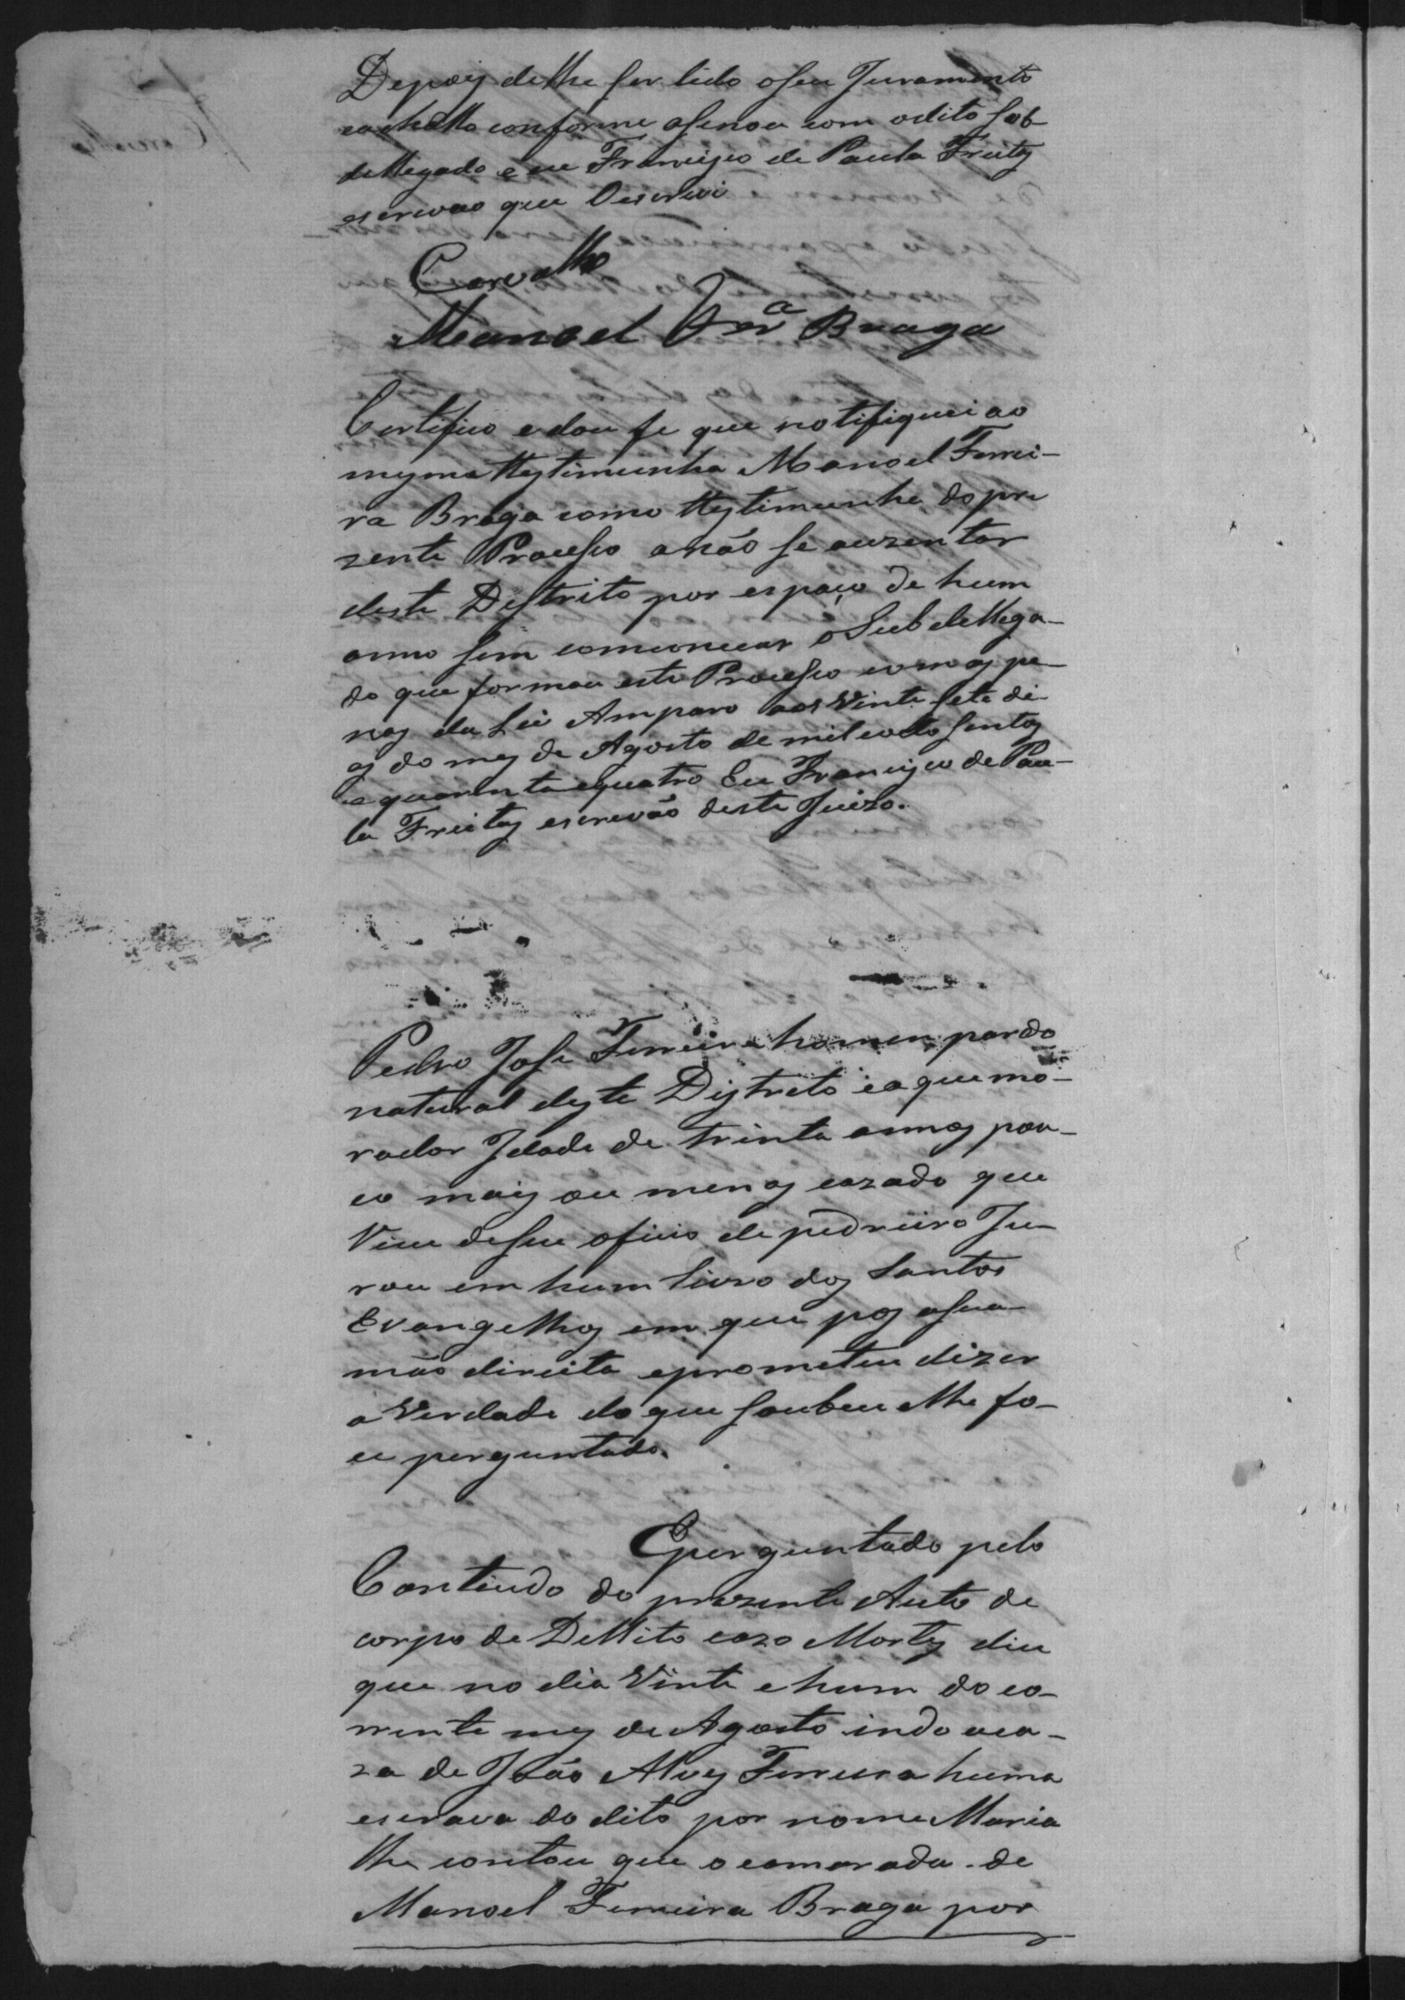 Depois de lhe ser lido o seu Juramento
e achallo conforme asinou com o dito Sob
dellegado e eu Francisco de Paula Freitas
escrivão que Oescrivi
Carvalho
Manoel Frrª Braga
Certifico e dou fe que notifiquei ao
mesma ttestimunha Manoel Ferrei-
ra Braga como ttestimunha do pre
zente Procésso a não se auzentar
deste Destrito por espaço de hum
anno sem comonicar o Sub dellega-
do que formou este Procésso com as pe-
nas da Lei Amparo aos Vinte sete di-
as do mes de Agosto de mil eoito sentos
e quarenta equatro Eu Francisco de Pau-
la Freitas escrevão deste Juizo.
Pedro Jose Ferreira homem pardo
natural deste Distreto e aque mo-
rador Idade de trinta annos pou-
co mais ou menos cazado que
Vive de seu oficio de pedreiro Ju-
rou em hum livro dos Santos
Evangelhos em que pos a sua
mão direita e prometeu dizer
a Verdade do que soubeu e lhe fo-
ce perguntado.
E perguntado pelo
Contiudo do prezente Auto de
corpo de Dellito cazo Mortes dice
que no dia Vinte e hum do co-
rrente mes de Agosto indo a ca-
za de João Alves Ferreira huma
escrava do dito por nome Maria
lhe contou que o camarada de
Manoel Ferreira Braga por
Carvalho